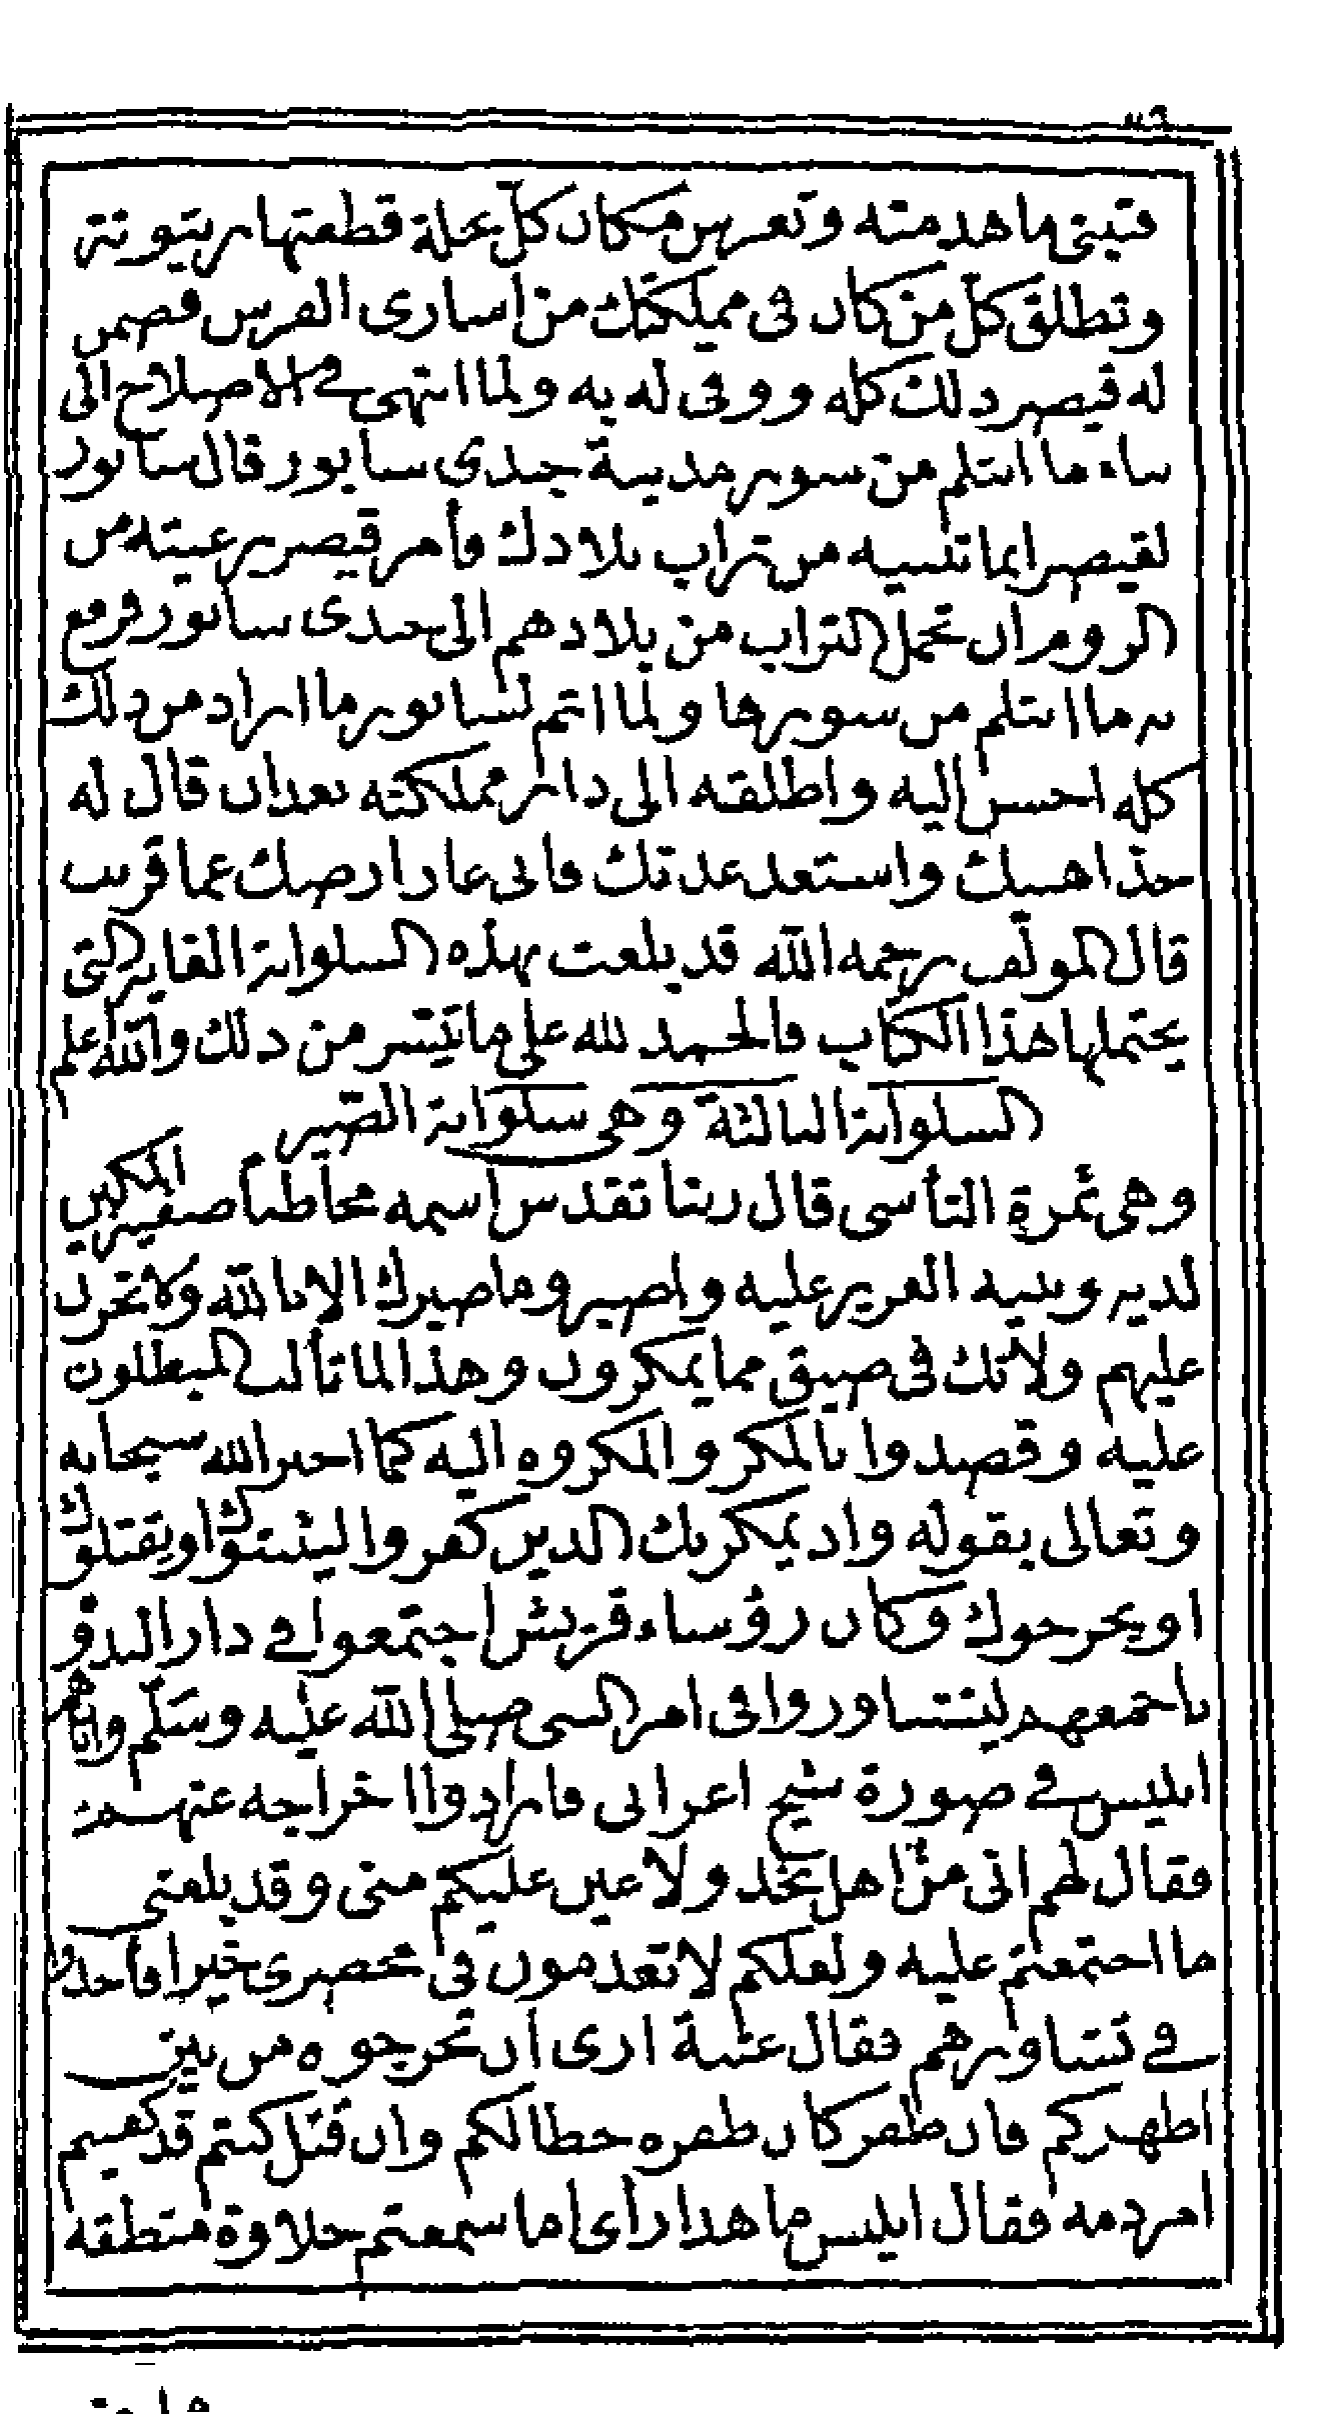 فتبنى ماهدمته وتغرس مكان كل نخلة قطعتها زيتونة
وتطلق كل من كان فى مملكتك من اسارى الفرس فضمن
له قيصر ذلك كله ووفى له به ولما انتهى فى الاصلاح الى
بناء ما انثلم من سور مدينة جندى سابور قال سابور
لقيصر انما تبنيه من تراب بلادك فأمر قيصر رعيته من
الروم ان تحمل التراب من بلادهم الى جندى سابور فرفع
به ما انثلم من سورها ولما اتم لسابور ما اراد من ذلك
كله احسن اليه واطلقه الى دار مملكته بعد ان قال له
خذ اهبتك واستعد عدتك فانى غاز ارضك عما قريب
قال المؤلف رحمه الله قد بلغت بهذه السلوانة الغاية التى
يحتملها هذا الكتاب فالحمد لله على ما تيسر من ذلك والله اعلم
السلوانة الثالثة وهى سلوانة الصبر
وهى ثمرة التأسى قال ربنا تقدس اسمه مخاطبا صفيه المكين
لديه ونبيه العزيز عليه واصبر وما صبرك الا بالله ولا تحزن
عليهم ولا تك فى ضيق مما يمكرون وهذا لما تألب المبطلون
عليه وقصدوا بالمكر والمكروه اليه كما اخبر الله سبحانه
وتعالى بقوله واذ يمكر بك الذين كفروا ليثبتوك او يقتلوك
او يخرجوك وكان رؤساء قريش اجتمعوا فى دار الندوة
باجمعهم ليتشاوروا فى امر النبى صلى الله عليه وسلم واتاهم
ابليس فى صورة شيخ اعرابى فارادوا اخراجه عنهم
فقال لهم انى من اهل نجد ولا عين عليكم منى وقد بلغنى
ما اجتمعتم عليه ولعلكم لا تعدمون فى محضرى خيرا فأخذوا
فى تشاورهم فقال عتبة ارى ان تخرجوه من بين
اظهركم فان ظفر كان ظفره حظا لكم وان قتل كنتم قد كفيتم
امر دمه فقال ابليس ما هذا رأى اما سمعتم حلاوة منطقه